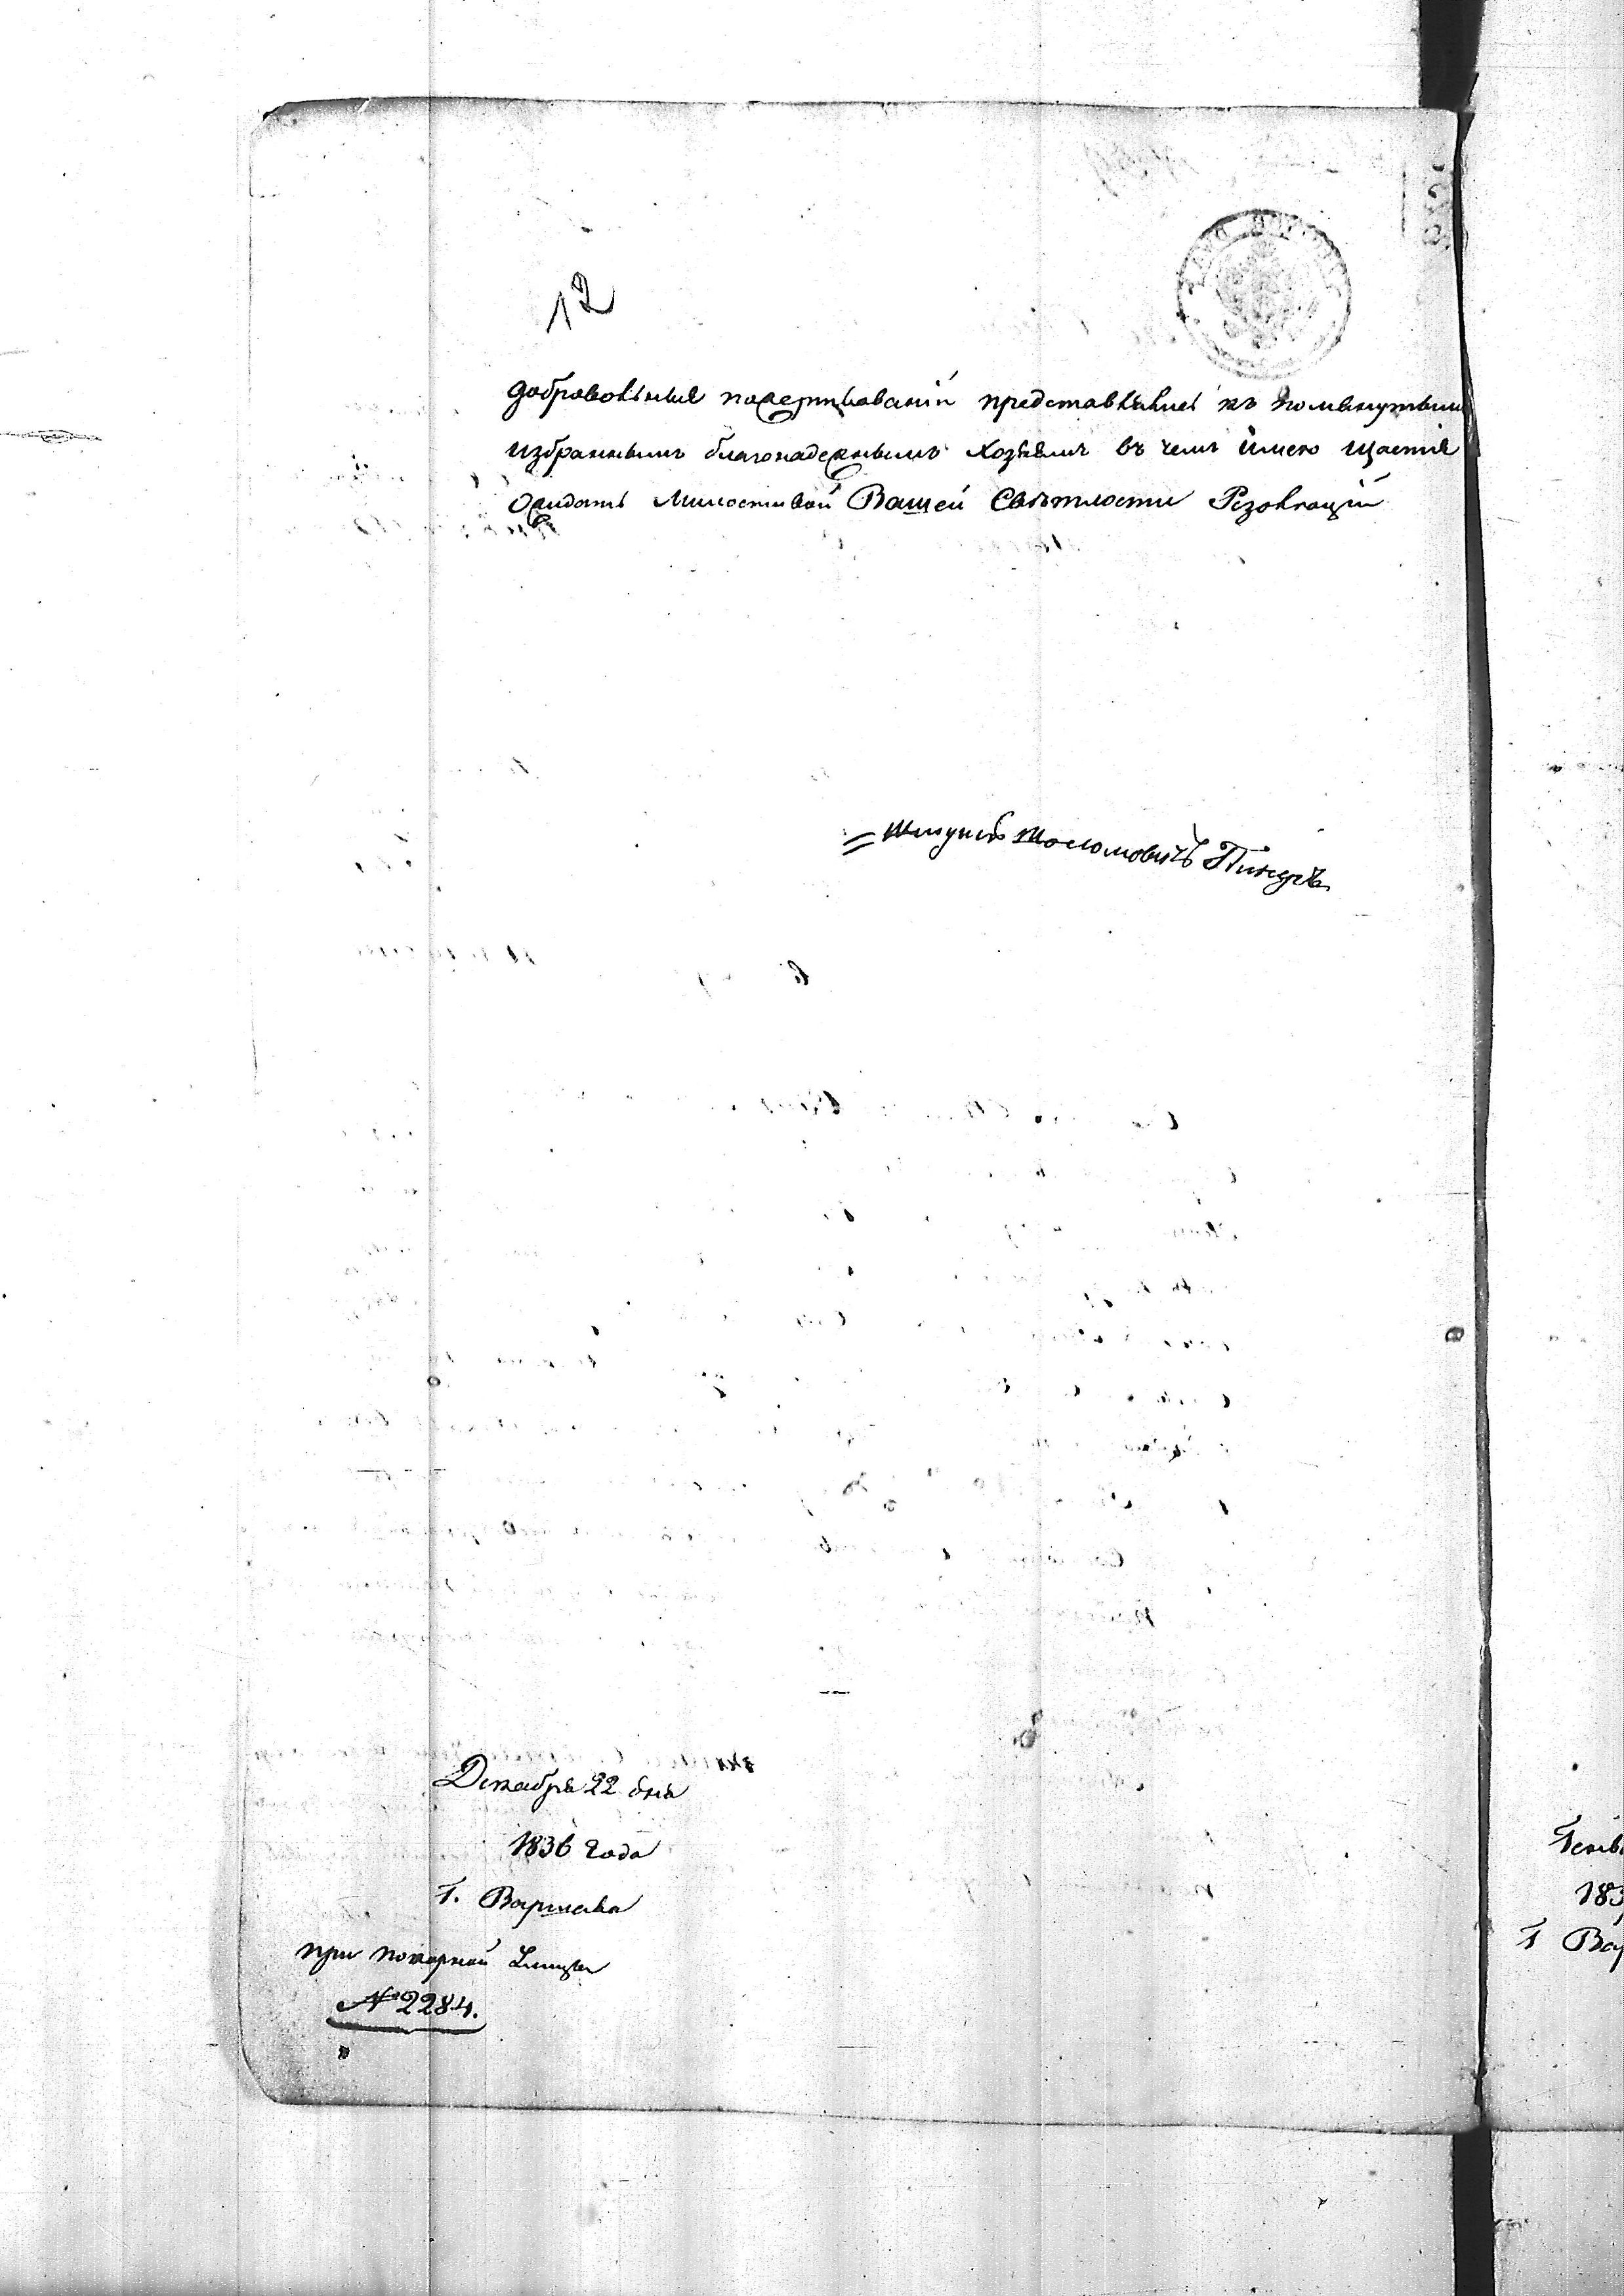 12
добровольныя пожертвованіи представлялись къ помянутымъ
избраннымъ благонадежнымъ хозяемъ въ чемъ имею щастіе
Ожидать Милостивой Вашей Светлости Резолюціи
Шоломовичъ
Декабря 22 дня
1836 года
Г. Варшава
при покорной
№ 2284.
183
Г Вар